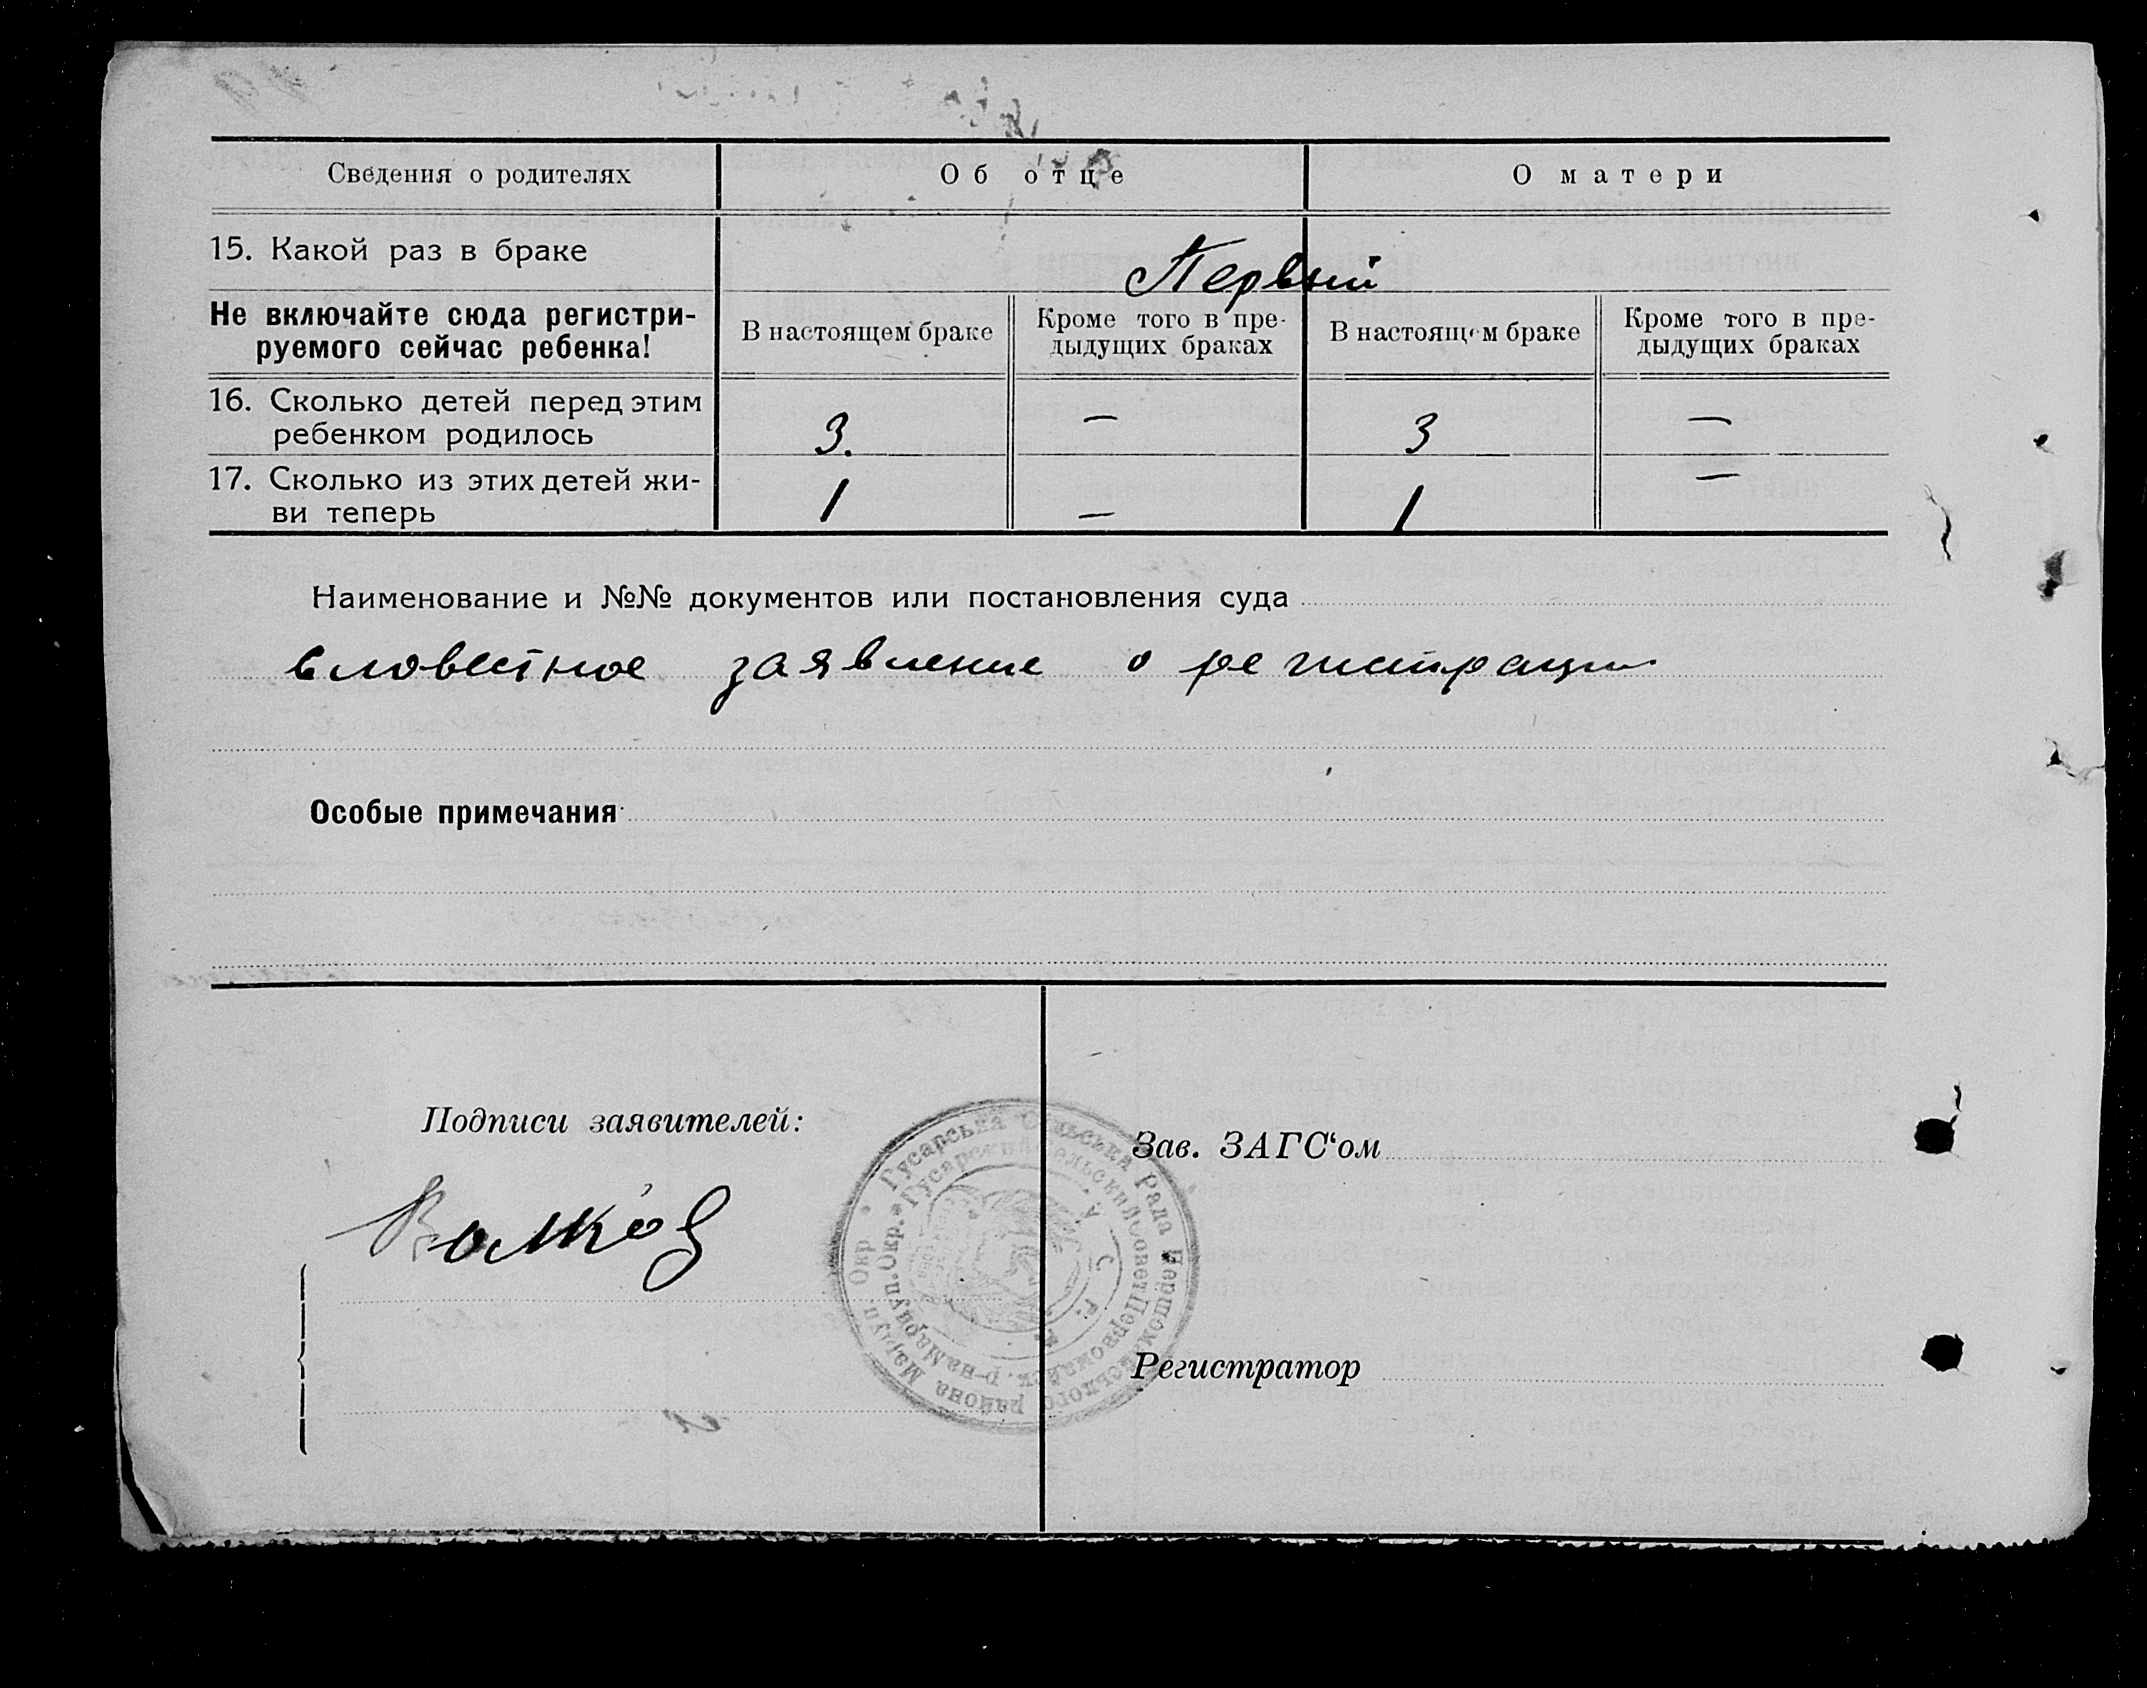 Сведения о родителях Об отце О матери
15. Какой раз в браке Первый
Не включайте сюда регистри-
руемого сейчас ребенка!
В настоящем браке
Кроме того в пре-
дыдущих браках
В настоящем браке
Кроме того в пре-
дыдущих браках
16. Сколько детей перед этим
ребенком родилось 3. — 3 —
17. Сколько из этих детей жи-
ви теперь 1 — 1 —
Наименование и №№ документов или постановления суда
словестное заявление о регистрации
Особые примечания
Подписи заявителей:
Волков
Зав. ЗАГС‘ом
Регистратор
Гусарська Сільська Рада Першотравенського района Маріуп. Окр.
Гусарский Сельский Совет Первомайск. р-на Мариуп. Окр.